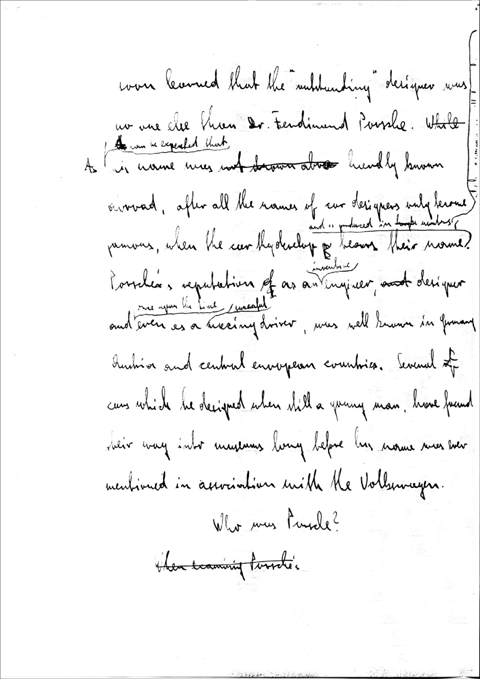 soon learned that the "outstanding" designer was
no one else than Dr. Ferdinand Porsche. While
As can be expected that
his name was not known abro hardly known
abroad, after all the names of car designers only become
and is produced in large numbers
famous, when the car they develop bears their name.
inventive
Porsche's reputation as an engineer, and designer
once upon the time
and even as a racing driver, was well known in Germany
Austria and central european countries. Several of
cars which he designed when still a young man, have found
their way into museums long before his name was ever
mentioned in association with the Volkswagen.
Who was Porsche?
When examining Porsche's